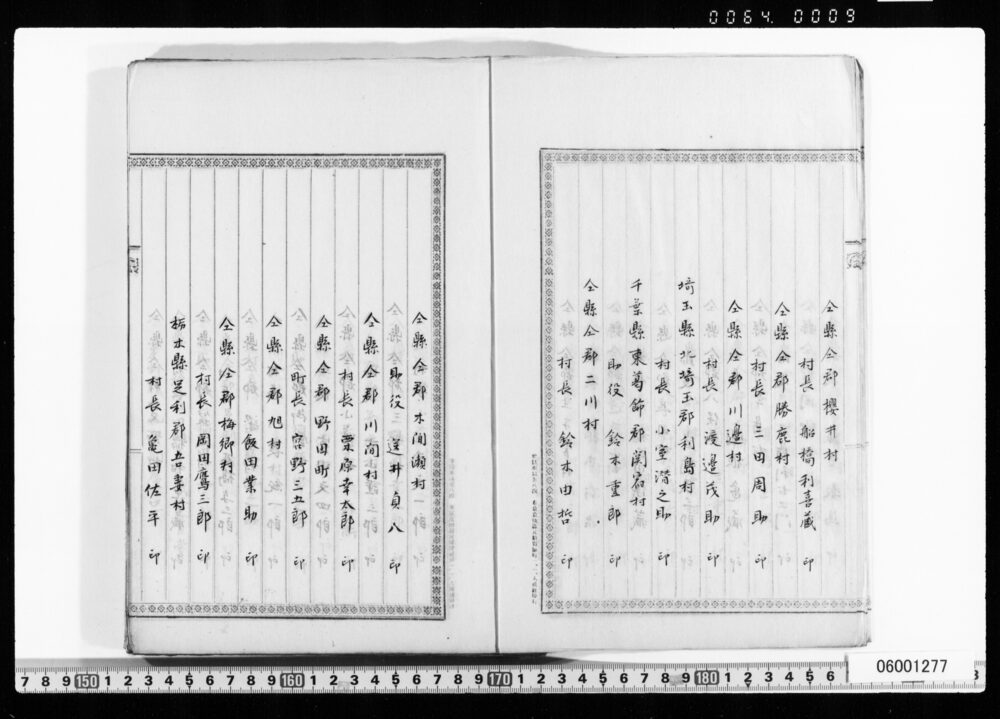 0064. 0009
仝縣仝郡櫻井村
村長 船橋利喜藏 印
仝縣仝郡勝鹿村
村長 三田周助 印
仝縣仝郡川邉村
村長 渡邉茂助 印
埼玉縣北埼玉郡利島村
村長 小室濳之助 印
千葉縣東葛飾郡関宿村
助役 鈴木重郎 印
仝縣仝郡二川村
村長 鈴木由哲 印
仝縣仝郡木間瀬村
助役 逆井貞八 印
仝縣仝郡川間村
村長 栗原幸太郎 印
仝縣仝郡野田町
町長 宮野三五郎 印
仝縣仝郡旭村
飯田業助 印
仝縣仝郡梅郷村
村長 岡田鷹三郎 印
栃木縣足利郡吾妻村
村長 亀田佐平 印
7 8 9 150 1 2 3 4 5 6 7 8 9 160 1 2 3 4 5 6 7 8 9 170 1 2 3 4 5 6 7 8 9 180 1 2 3 4 5 6
06001277